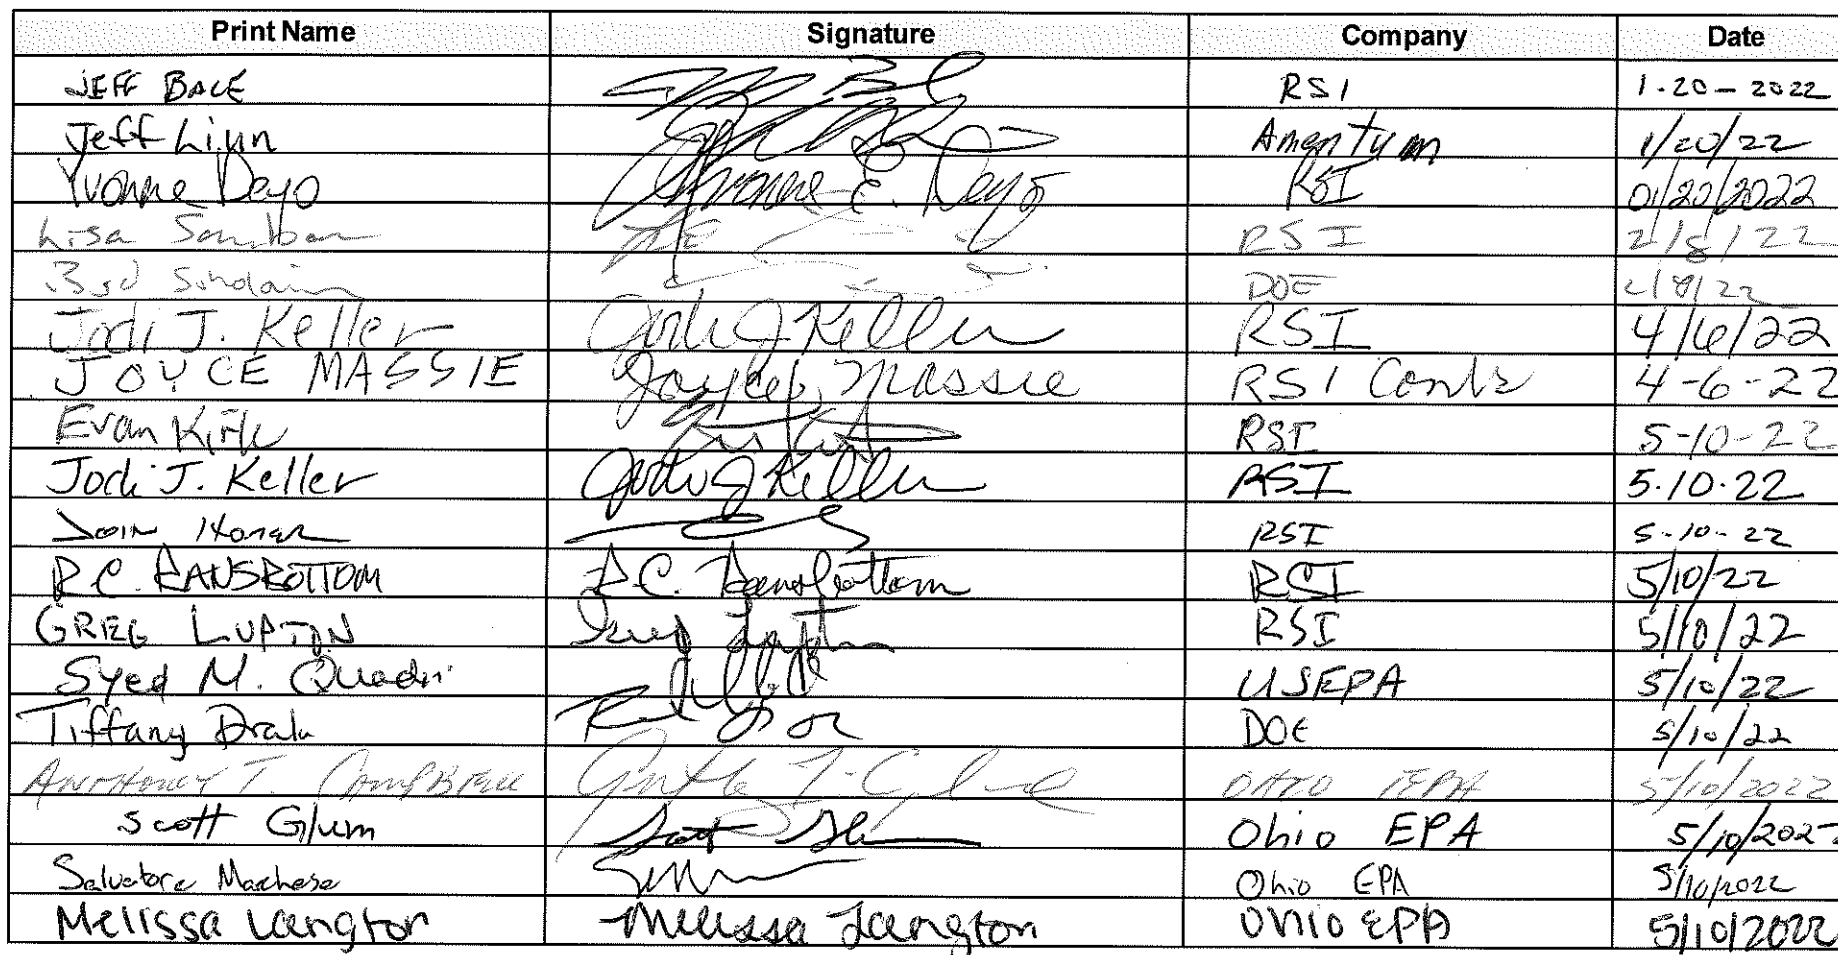 Print Name Signature Company Date
JEFF BACE RSI 1-20-2022
Jeff Linn Amentum 1/20/22
Yvonne Deyo Yvonne E. Deyo RSI 01/20/2022
Lisa RSI 2/8/22
DOE 2/8/22
Jodi J. Keller Jodi J Keller RSI 4/6/22
JOYCE MASSIE Joyce Massie RSI 4-6-22
Evan Kirk RSI 5-10-22
Jodi J. Keller Jodi J Keller RSI 5.10.22
RSI 5-10-22
R.C. RANSBOTTOM R.C. Ransbottom RSI 5/10/22
GREG LUPTON Greg Lupton RSI 5/10/22
Syed M. Quadri USEPA 5/10/22
Tiffany Drake DOE 5/10/22
ANTHONY T. CAMPBELL OHIO EPA 5/10/2022
Scott Glum Scott Ohio EPA 5/10/2022
Salvatore Ohio EPA 5/10/2022
Melissa Langton Melissa Langton Ohio EPA 5/10/2022